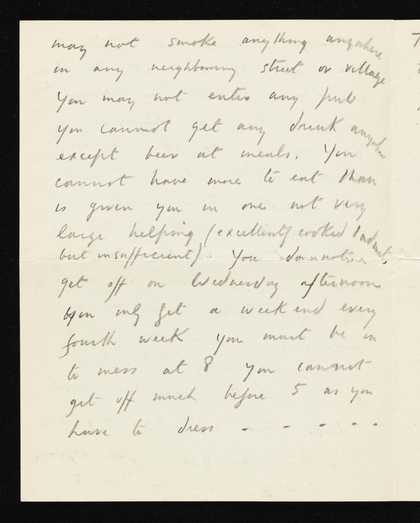 may not smoke anything anywhere
in any neighbouring street or village
You may not enter any pub
you cannot get any drink anywhere
except beer at meals. You
cannot have more to eat than
is given you in one not very
large helping (excellently cooked I admit,
but insufficient). You do not
get off on Wednesday afternoon
You only get a week end every
fourth week you must be in
to mess at 8 you cannot
get off much before 5 as you
have to dress - - - - - -
T